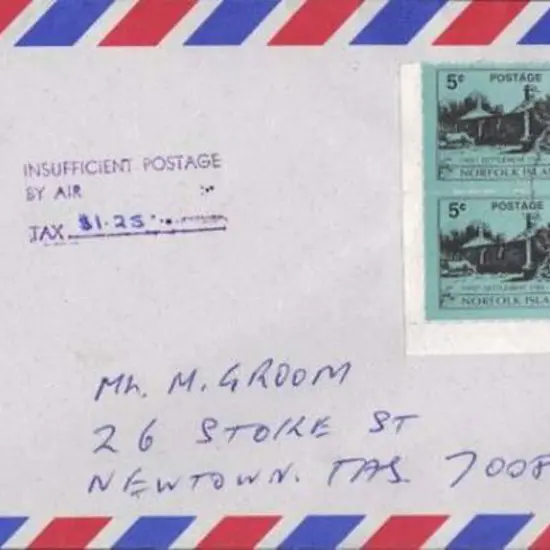 INSUFFICIENT POSTAGE
BY AIR
TAX $1.25
5c POSTAGE
FIRST SETTLEMENT
NORFOLK ISLAN
5c POSTAGE
FIRST SETTLEMENT
NORFOLK ISLAN
Mr. M. GROOM
26 STOKE ST
NEWTOWN. TAS. 7008